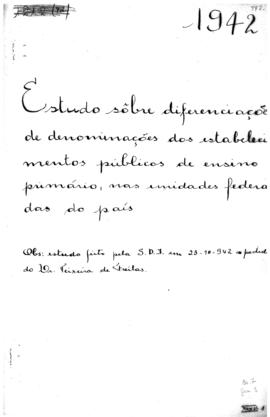 1942
Estudo sôbre diferenciaçõe
de denominações dos estabeleci
mentos públicos de ensino
primário, nas unidades federa
das do país
Obs: estudo feito pela S.D.I. em 23-10-942 a pedido
do Dr. Teixeira de Freitas.